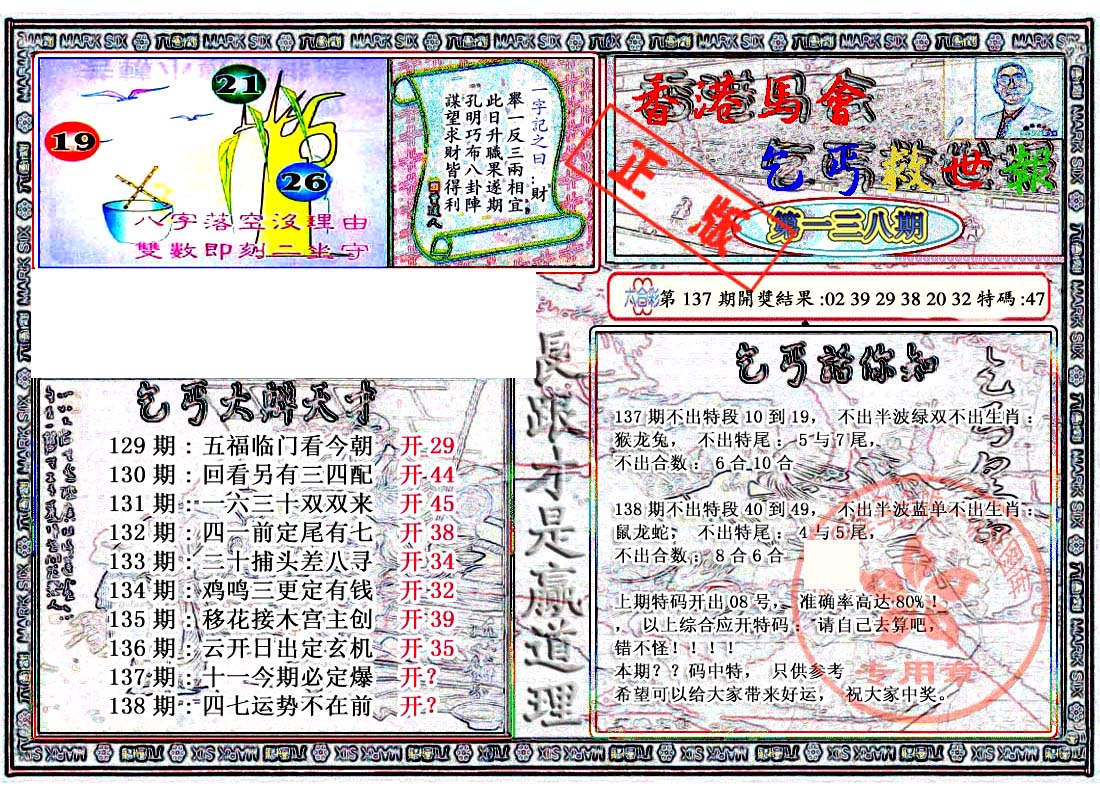 香港馬會
乞丐救世報
第一三八期
正版
21
19
26
八字落空沒理由
雙數即刻二坐守
一字記之曰:財
舉一反三兩相宜
此日升職果遂期
孔明巧布八卦陣
謀望求財皆得利
六合彩第 137 期開獎結果:02 39 29 38 20 32 特碼:47
長跟才是贏道理
129 期：五福临门看今朝 开 29
130 期：回看另有三四配 开 44
131 期：一六三十双双来 开 45
132 期：四一前定尾有七 开 38
133 期：三十捕头差八寻 开 34
134 期：鸡鸣三更定有钱 开 32
135 期：移花接木宫主创 开 39
136 期：云开日出定玄机 开 35
137 期：十一今期必定爆 开？
138 期：四七运势不在前 开？
乞丐話你知
137 期不出特段 10 到 19， 不出半波绿双不出生肖：
猴龙兔， 不出特尾： 5 与 7 尾，
不出合数： 6 合 10 合
138 期不出特段 40 到 49， 不出半波蓝单不出生肖：
鼠龙蛇， 不出特尾： 4 与 5 尾，
不出合数： 8 合 6 合
上期特码开出 08 号， 准确率高达 80%！
， 以上综合应开特码： 请自己去算吧，
错不怪！！！！
本期？？码中特， 只供参考
希望可以给大家带来好运， 祝大家中奖。
专用章
MARK SIX